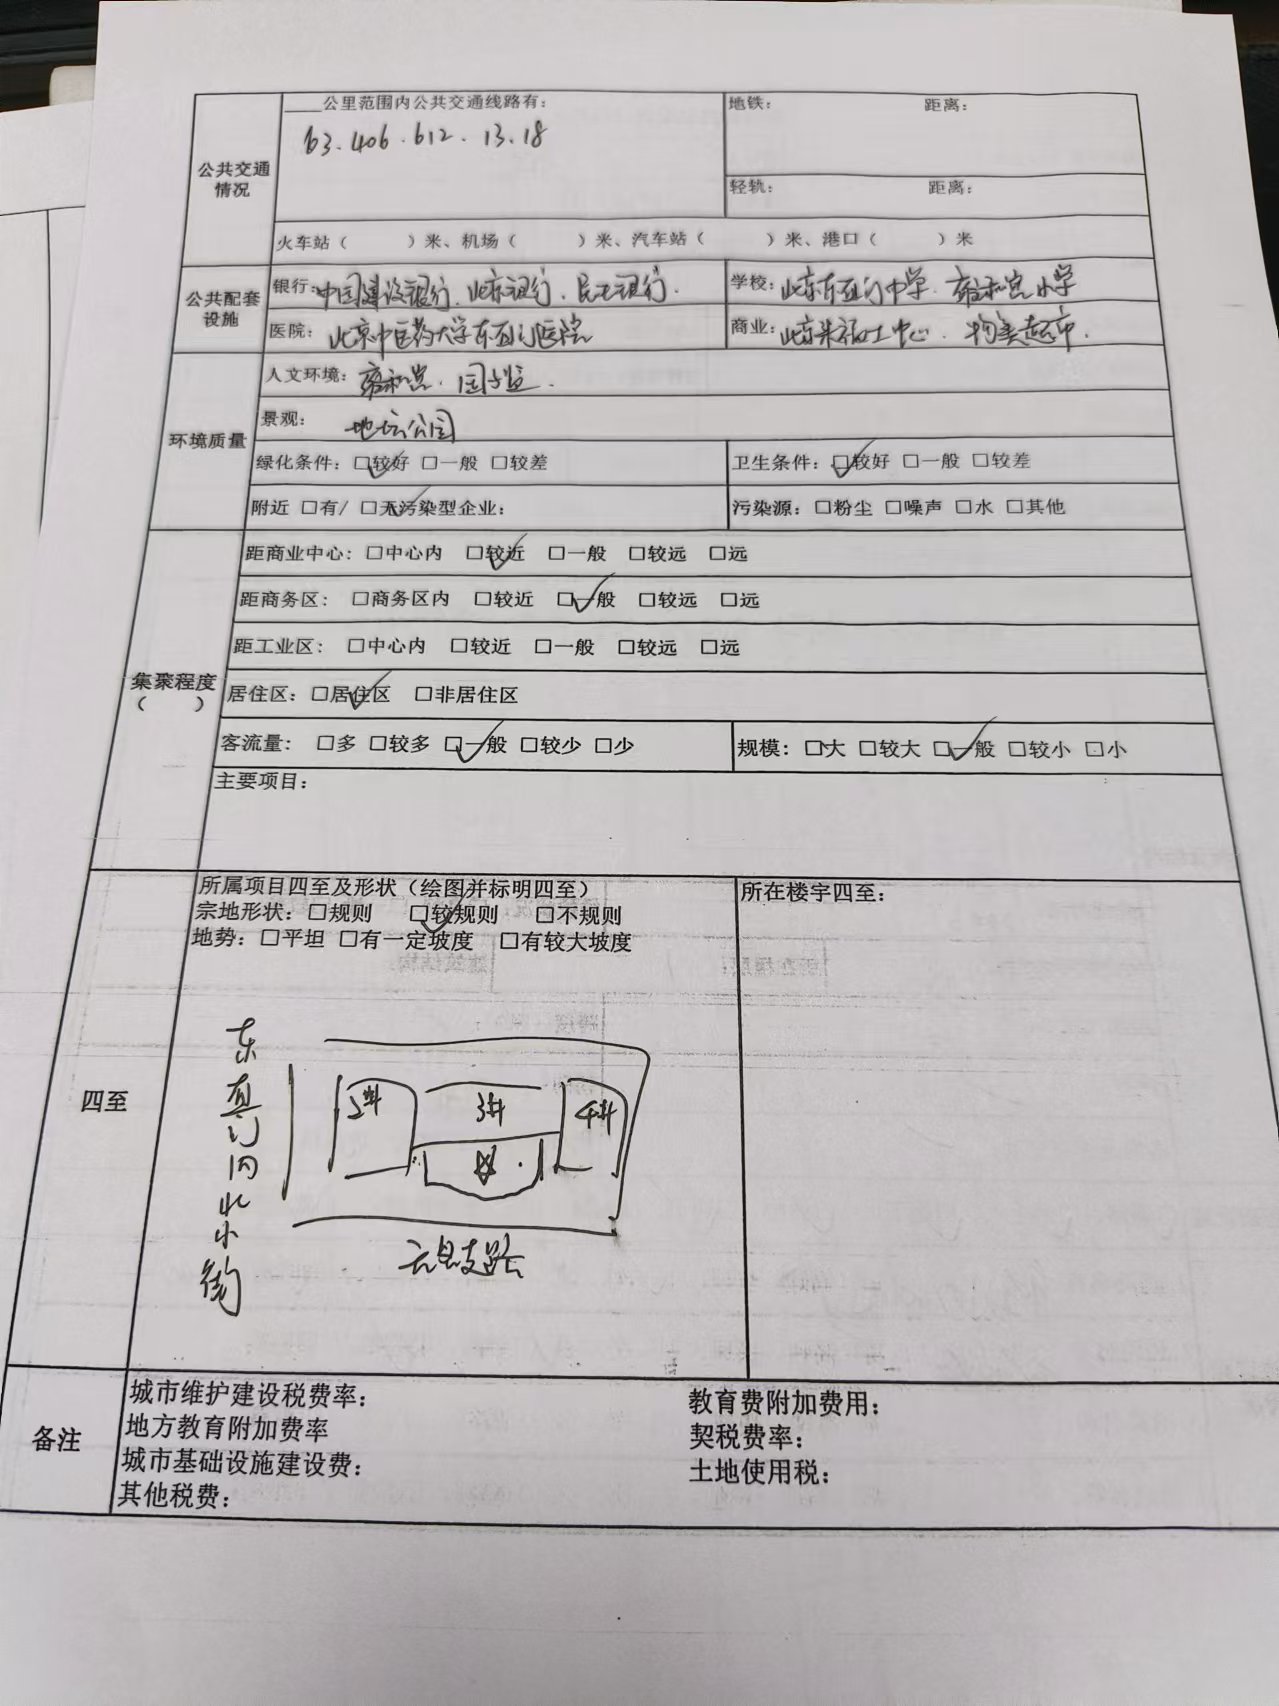 ____公里范围内公共交通线路有：
63. 406. 612. 13. 18
地铁： 距离：
公共交通情况
轻轨： 距离：
火车站（ ）米、机场（ ）米、汽车站（ ）米、港口（ ）米
公共配套设施
银行：中国建设银行、北京银行、民生银行.
学校：北京东直门中学. 雍和宫小学
医院：北京中医药大学东直门医院
商业：北京来福士中心. 物美超市.
环境质量
人文环境：雍和宫. 国子监.
景观：地坛公园
绿化条件：☑较好 □一般 □较差
卫生条件：☑较好 □一般 □较差
附近 □有/ ☑无污染型企业：
污染源：□粉尘 □噪声 □水 □其他
集聚程度
（ ）
距商业中心：□中心内 ☑较近 □一般 □较远 □远
距商务区：□商务区内 □较近 ☑一般 □较远 □远
距工业区：□中心内 □较近 □一般 □较远 □远
居住区：☑居住区 □非居住区
客流量：□多 □较多 ☑一般 □较少 □少
规模：□大 □较大 ☑一般 □较小 □小
主要项目：
四至
所属项目四至及形状（绘图并标明四至）
宗地形状：□规则 ☑较规则 □不规则
地势：□平坦 □有一定坡度 □有较大坡度
所在楼宇四至：
东直门内北小街
2#
3#
4#
备注
城市维护建设税费率：
教育费附加费用：
地方教育附加费率
契税费率：
城市基础设施建设费：
土地使用税：
其他税费：